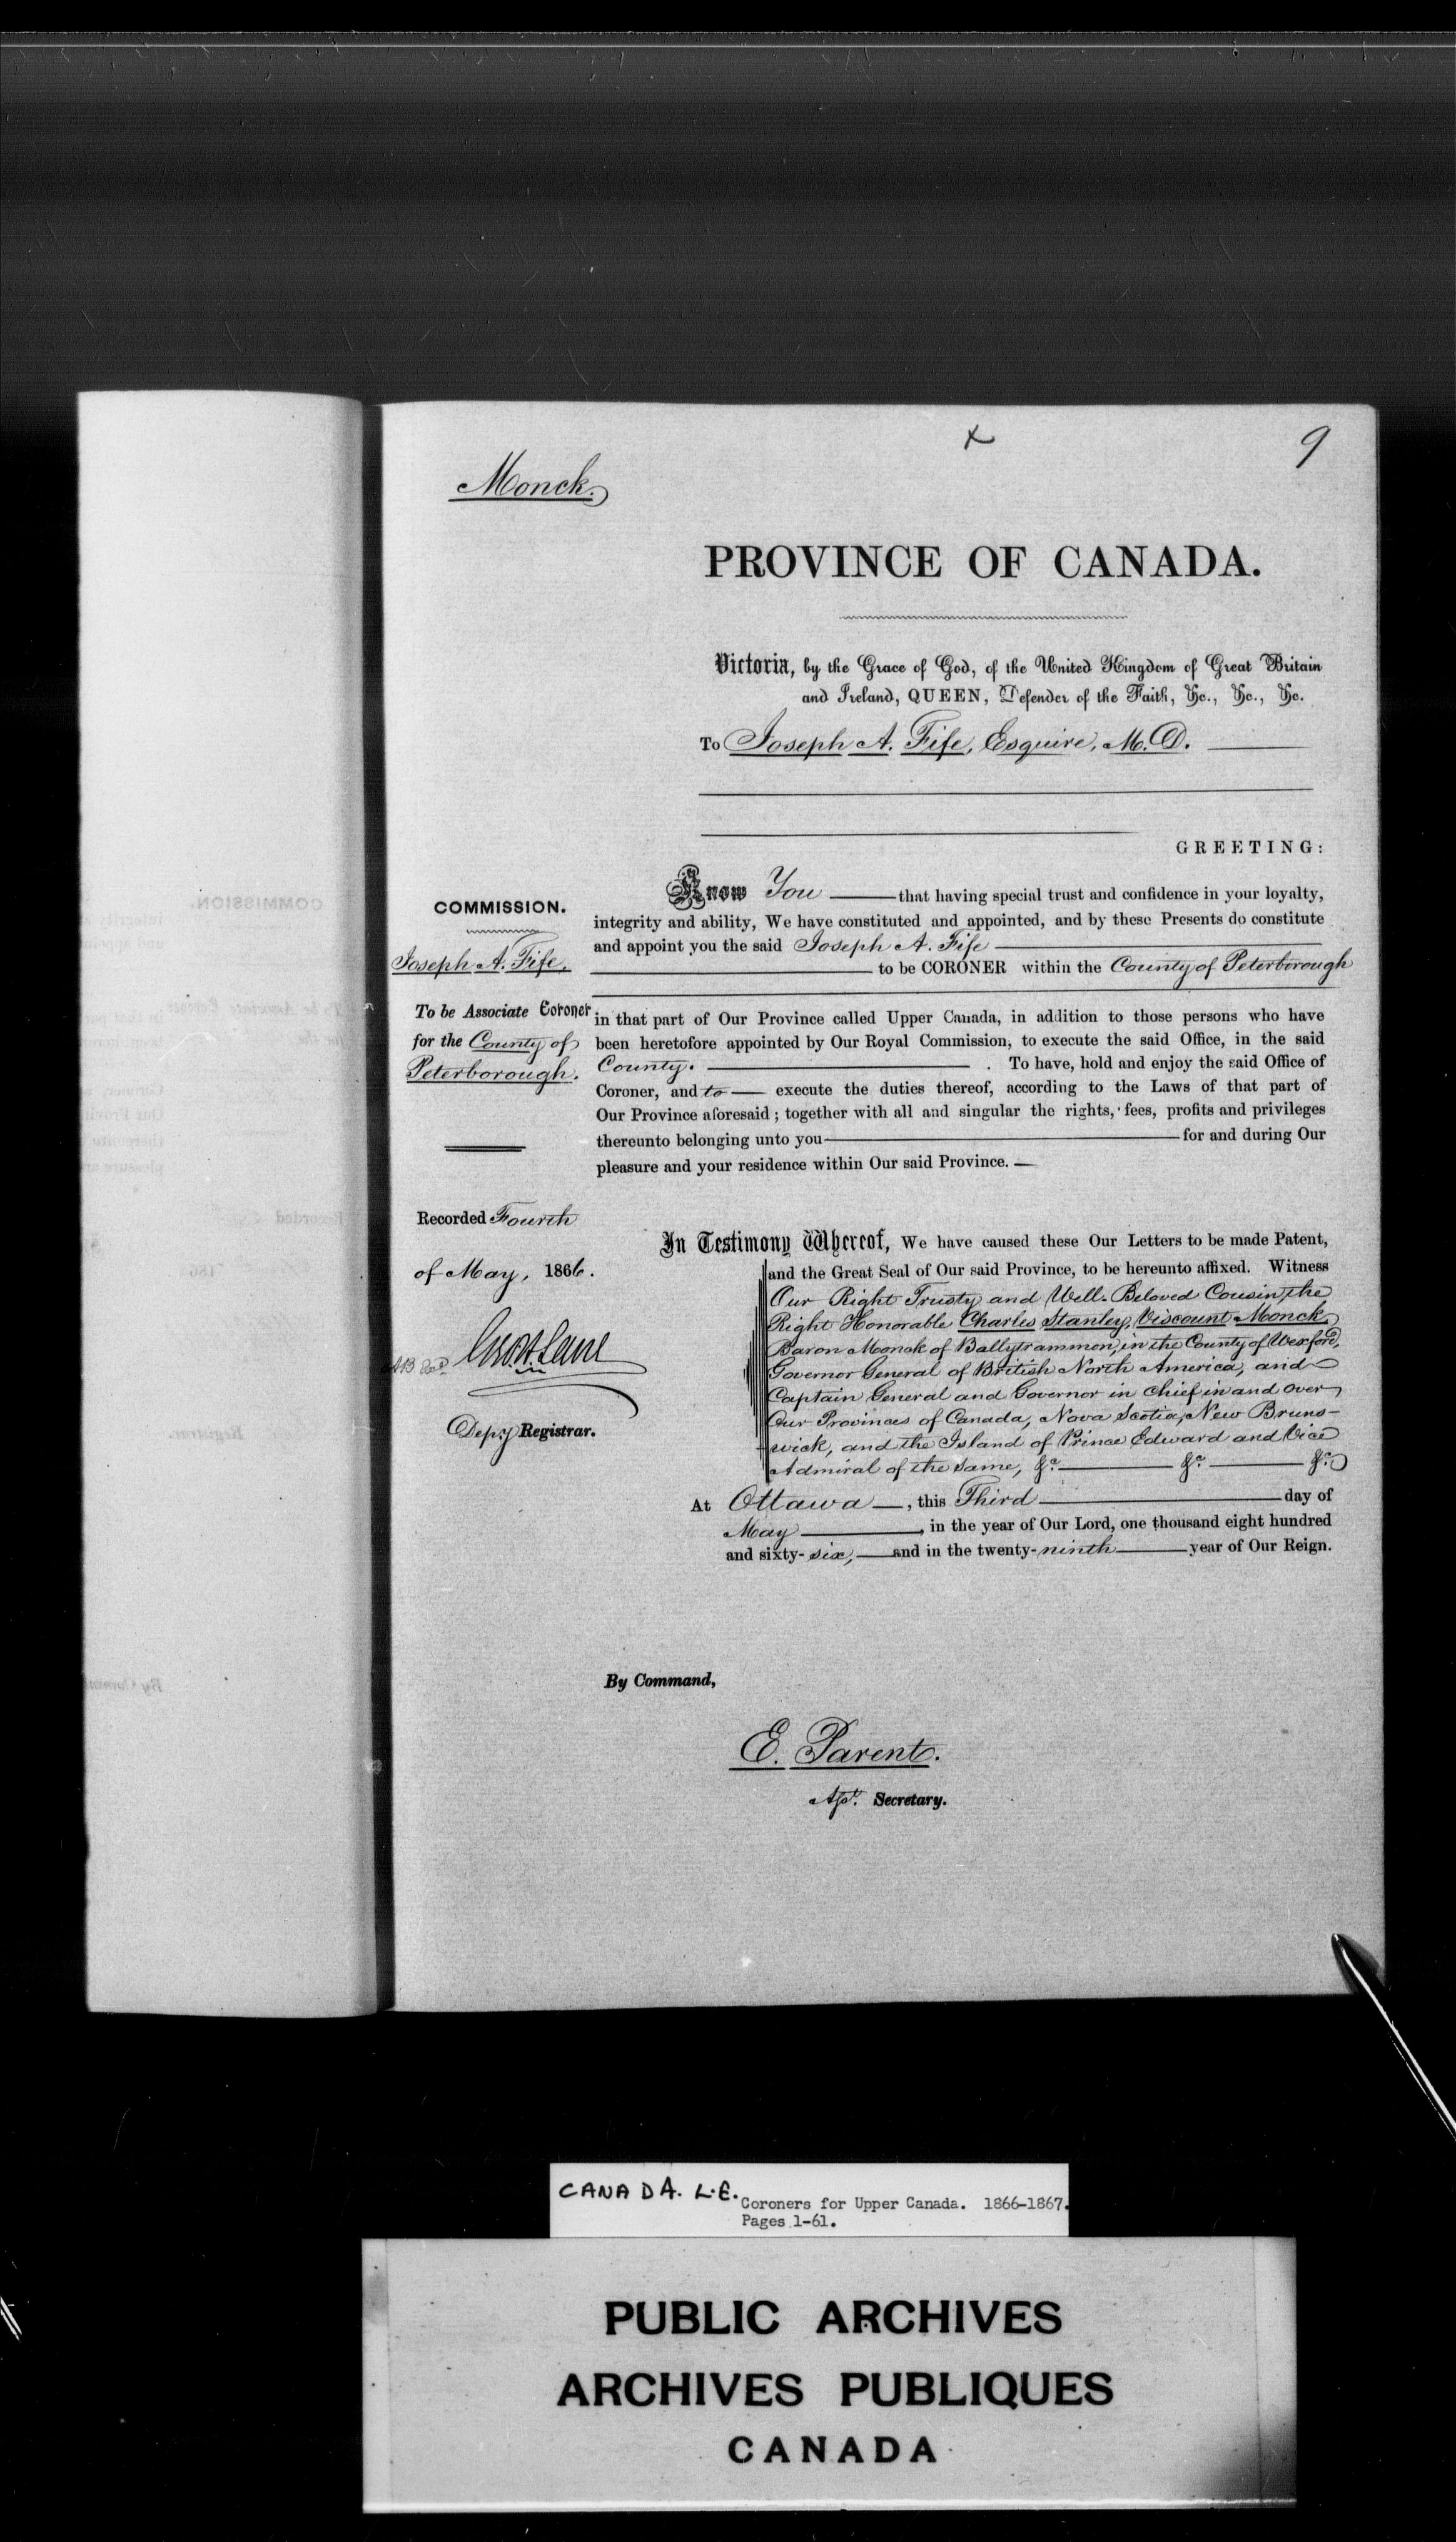 x
9
Monck.
PROVINCE OF CANADA.
Victoria, by the Grace of God, of the United Kingdom of Great Britain
and Ireland, QUEEN, Defender of the Faith, &c., &c., &c.
To Joseph A. Fife, Esquire, M.D.
GREETING:
COMMISSION.
Joseph A. Fife,
To be Associate Coroner
for the County of
Peterborough.
Know You that having special trust and confidence in your loyalty,
integrity and ability, We have constituted and appointed, and by these Presents do constitute
and appoint you the said Joseph A. Fife
to be CORONER within the County of Peterborough
in that part of Our Province called Upper Canada, in addition to those persons who have
been heretofore appointed by Our Royal Commission, to execute the said Office, in the said
County. . To have, hold and enjoy the said Office of
Coroner, and to execute the duties thereof, according to the Laws of that part of
Our Province aforesaid; together with all and singular the rights, fees, profits and privileges
thereunto belonging unto you for and during Our
pleasure and your residence within Our said Province.
Recorded Fourth
of May, 1866.
Geo H Lane
Depy Registrar.
In Testimony Whereof, We have caused these Our Letters to be made Patent,
and the Great Seal of Our said Province, to be hereunto affixed. Witness
Our Right Trusty and Well-Beloved Cousin, the
Right Honorable Charles Stanley, Viscount Monck,
Baron Monck of Ballytrammon, in the County of Wexford,
Governor General of British North America, and
Captain General and Governor in chief in and over
Our Provinces of Canada, Nova Scotia, New Bruns-
wick, and the Island of Prince Edward and Vice
Admiral of the same, &c. &c. &c.
At Ottawa, this Third day of
May, in the year of Our Lord, one thousand eight hundred
and sixty-six, and in the twenty-ninth year of Our Reign.
By Command,
E. Parent.
Asst. Secretary.
CANADA. L.E.
Coroners for Upper Canada. 1866-1867.
Pages 1-61.
PUBLIC ARCHIVES
ARCHIVES PUBLIQUES
CANADA